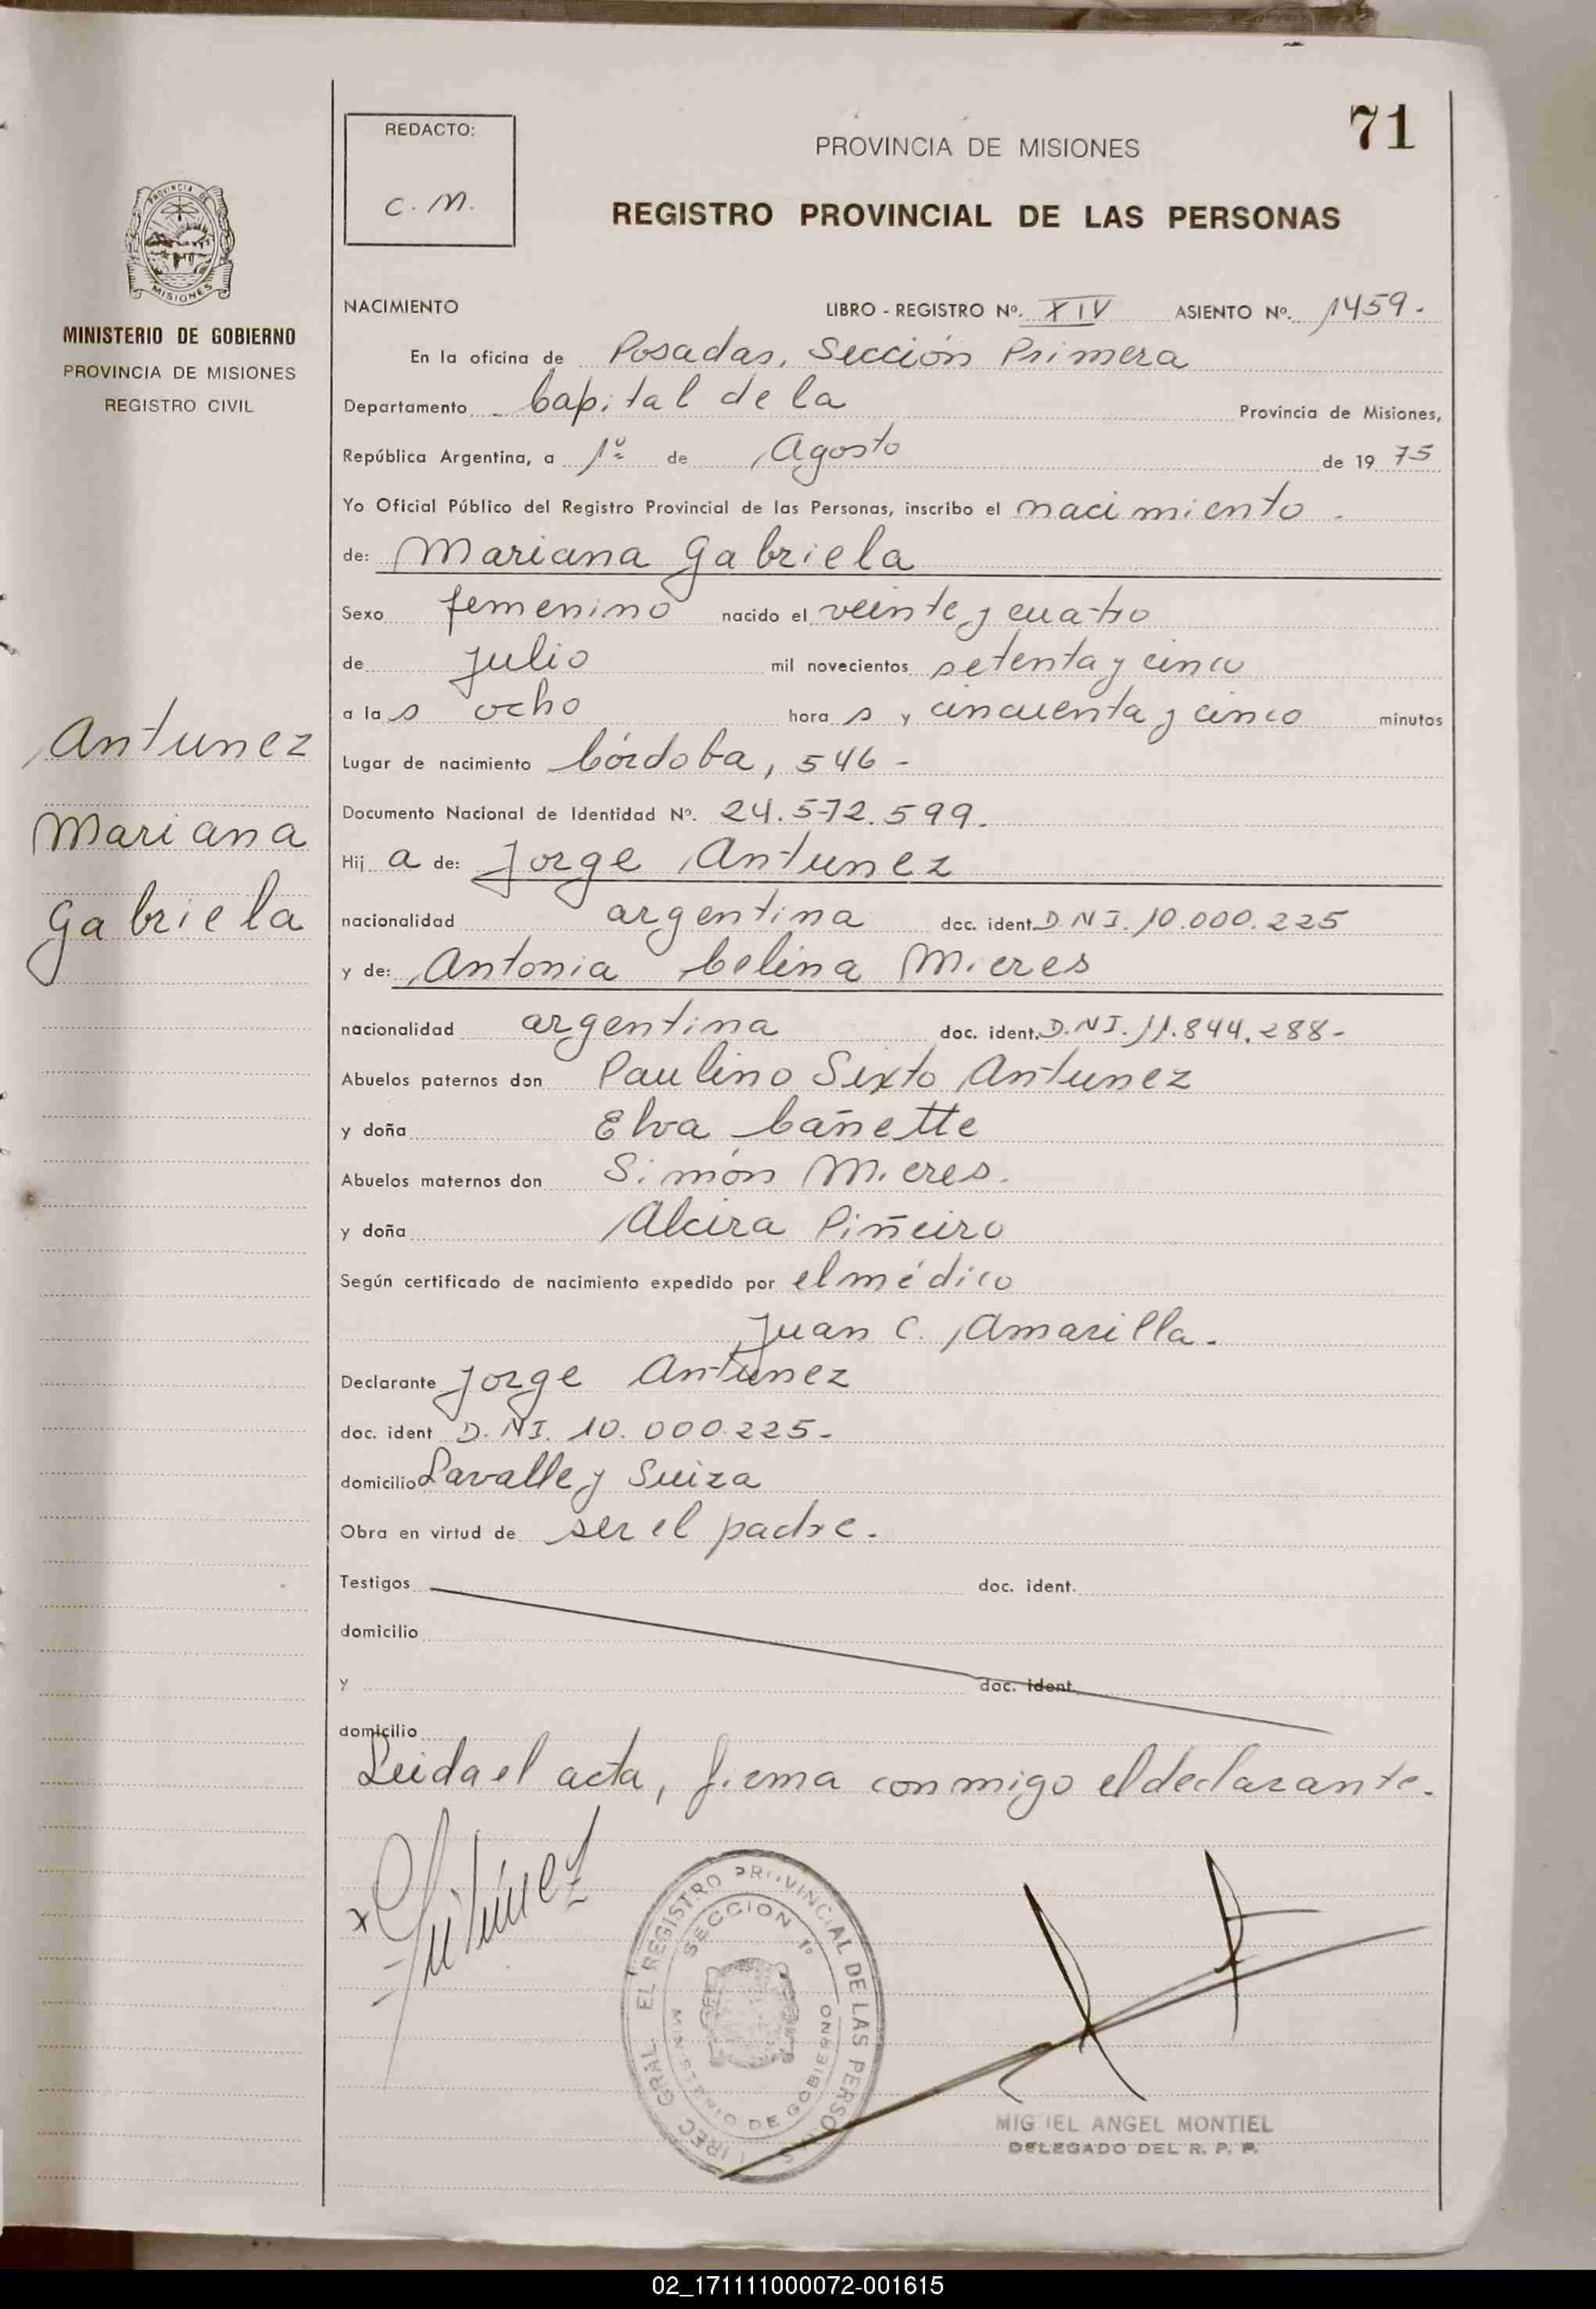 71
REDACTO:
C. M.
PROVINCIA DE MISIONES
REGISTRO PROVINCIAL DE LAS PERSONAS
PROVINCIA DE
MISIONES
MINISTERIO DE GOBIERNO
PROVINCIA DE MISIONES
REGISTRO CIVIL
Antunez
Mariana
Gabriela
NACIMIENTO LIBRO - REGISTRO Nº. XIV ASIENTO Nº. 1459.
En la oficina de Posadas, Sección Primera
Departamento Capital de la Provincia de Misiones,
República Argentina, a 1º de Agosto de 1975
Yo Oficial Público del Registro Provincial de las Personas, inscribo el nacimiento.
de: Mariana Gabriela
Sexo femenino nacido el veinte y cuatro
de julio mil novecientos setenta y cinco
a las ocho horas y cincuenta y cinco minutos
Lugar de nacimiento Córdoba, 546-
Documento Nacional de Identidad Nº. 24.572.599.
Hija de: Jorge Antunez
nacionalidad argentina doc. ident. D.N.I. 10.000.225
y de: Antonia Celina Mieres
nacionalidad argentina doc. ident. D.N.I. 11.844.288-
Abuelos paternos don Paulino Sixto Antunez
y doña Elva Cañette
Abuelos maternos don Simón Mieres.
y doña Alcira Piñeiro
Según certificado de nacimiento expedido por el médico
Juan C. Amarilla.
Declarante Jorge Antunez
doc. ident D.N.I. 10.000.225-
domicilio Lavalle y Suiza
Obra en virtud de ser el padre.
Testigos doc. ident.
domicilio
y doc. ident.
domicilio
Leida el acta, firma conmigo el declarante.
Antúnez
EL REGISTRO PROVINCIAL DE LAS PERSONAS
SECCION 1º
MINISTERIO DE GOBIERNO
MIGUEL ANGEL MONTIEL
DELEGADO DEL R. P. P.
02_171111000072-001615